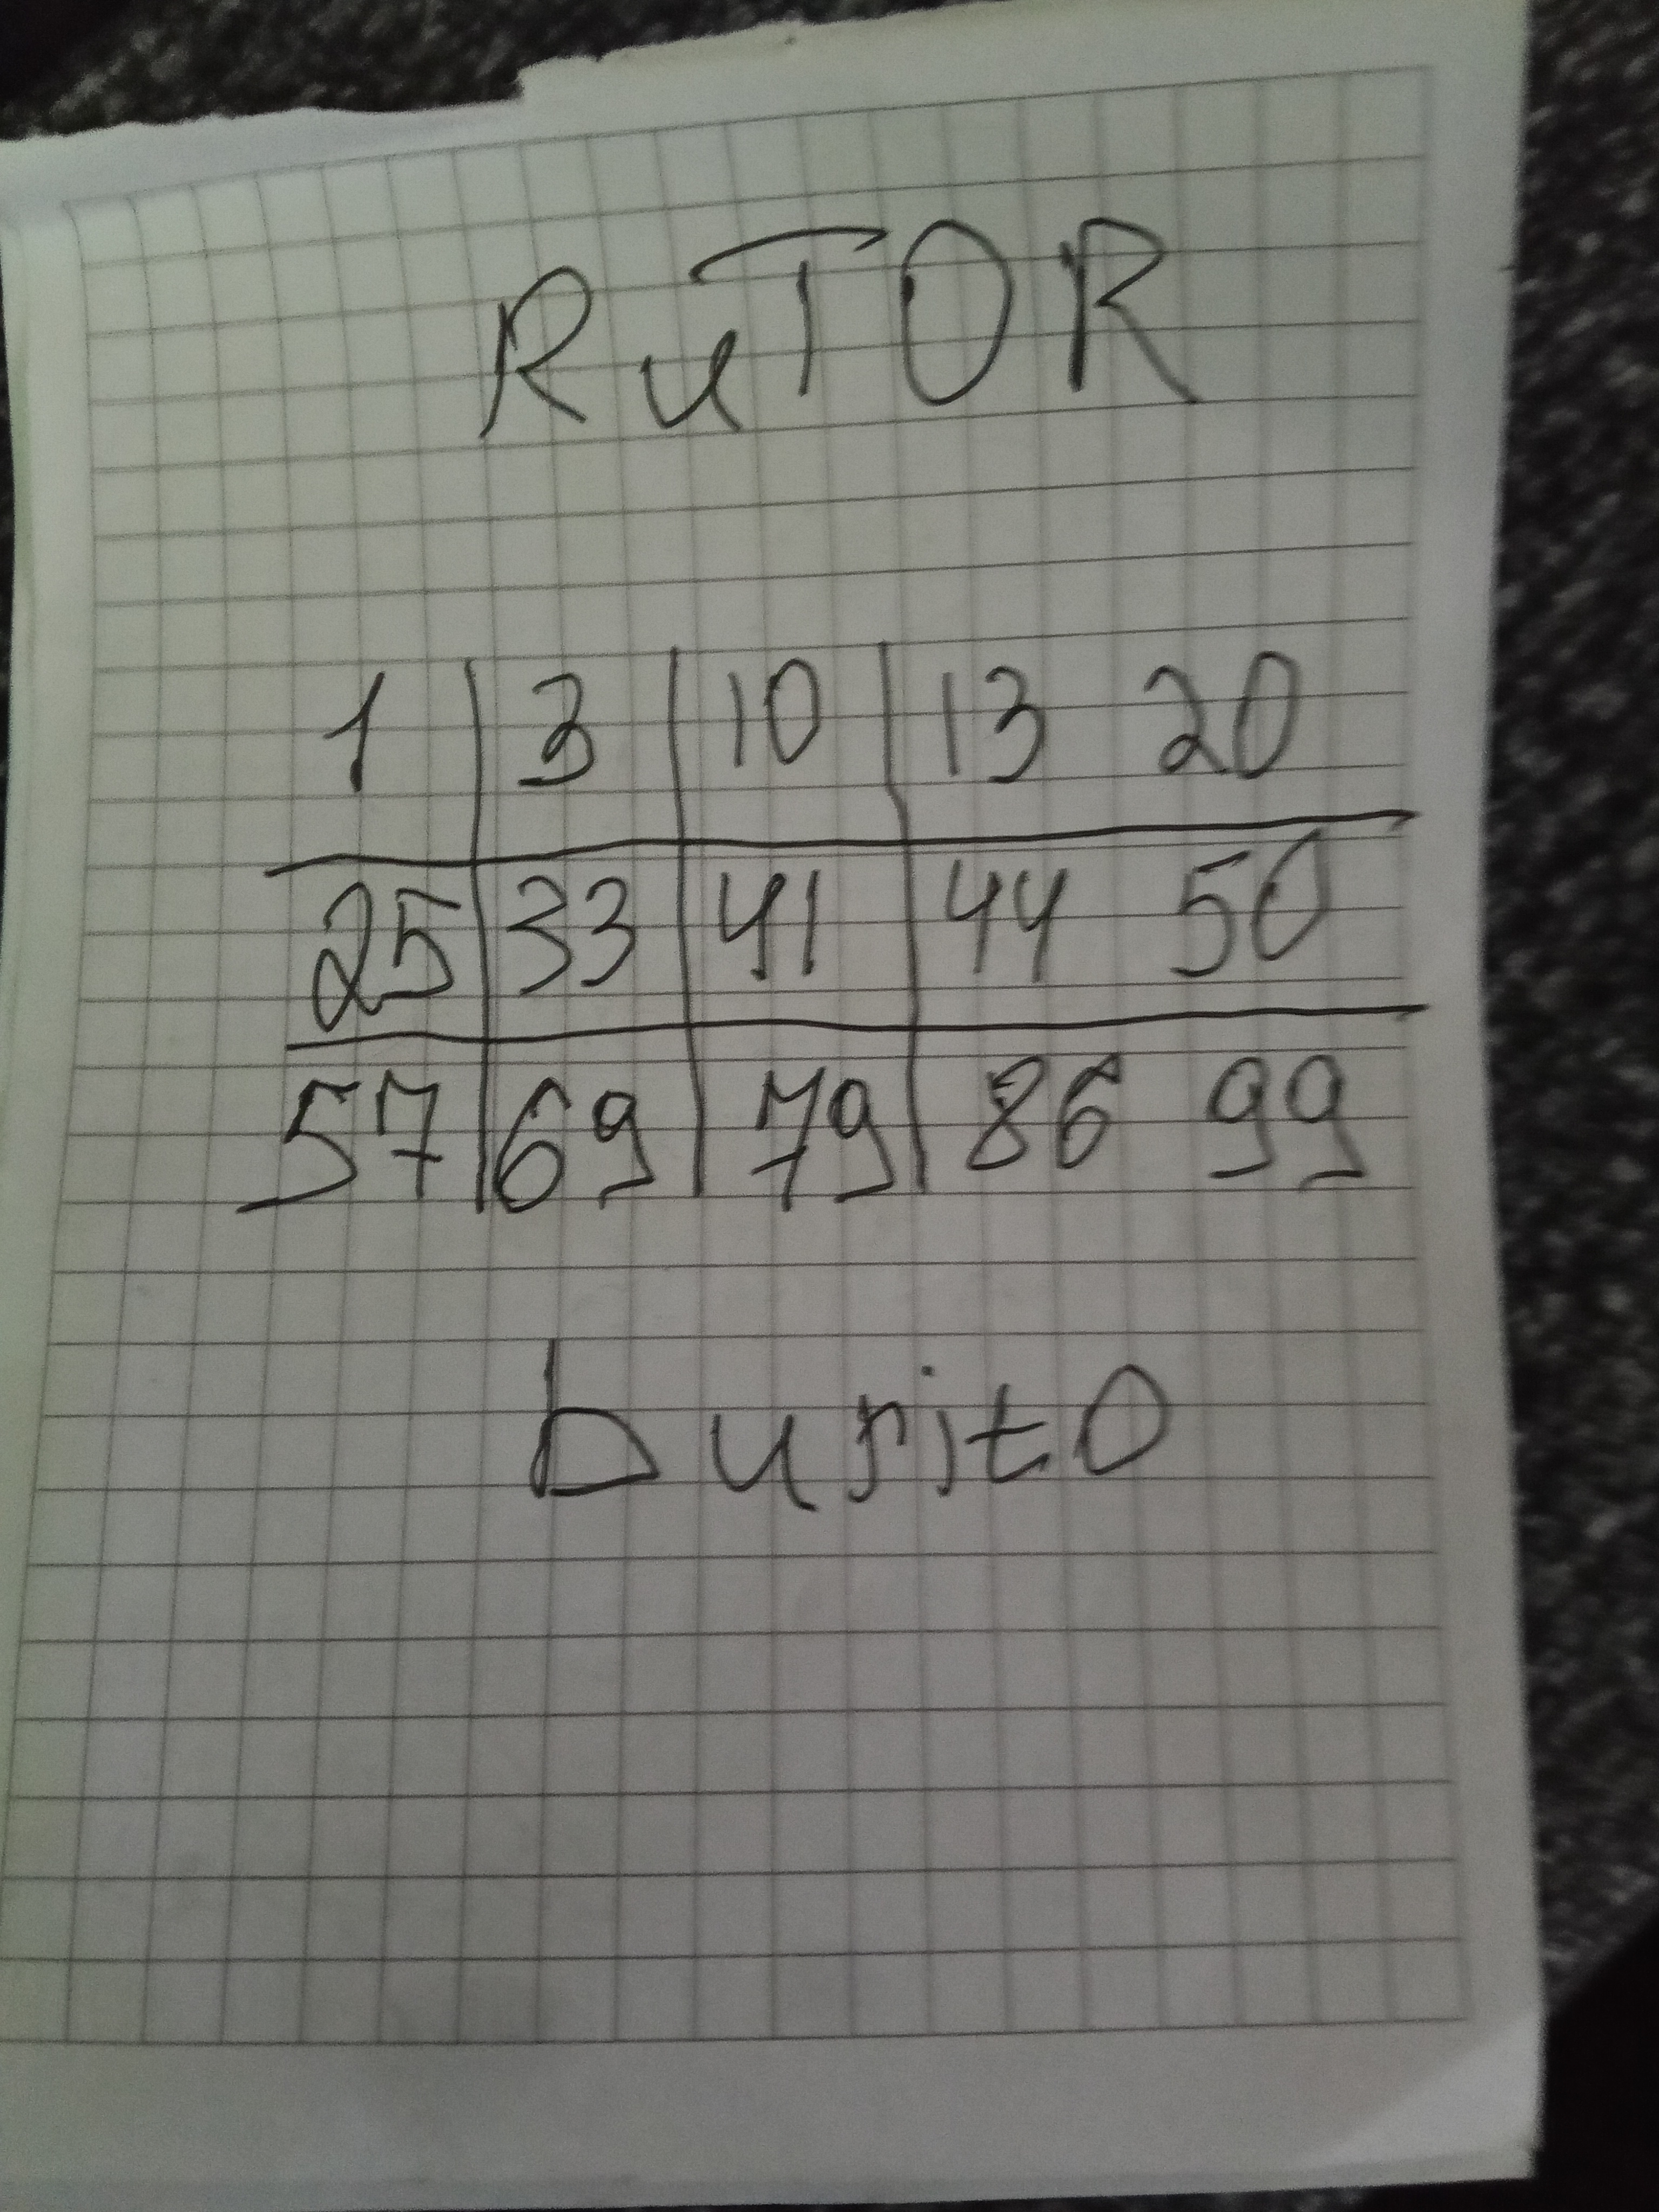 RuTOR
1 3 10 13 20
25 33 41 44 50
57 69 79 86 99
burito